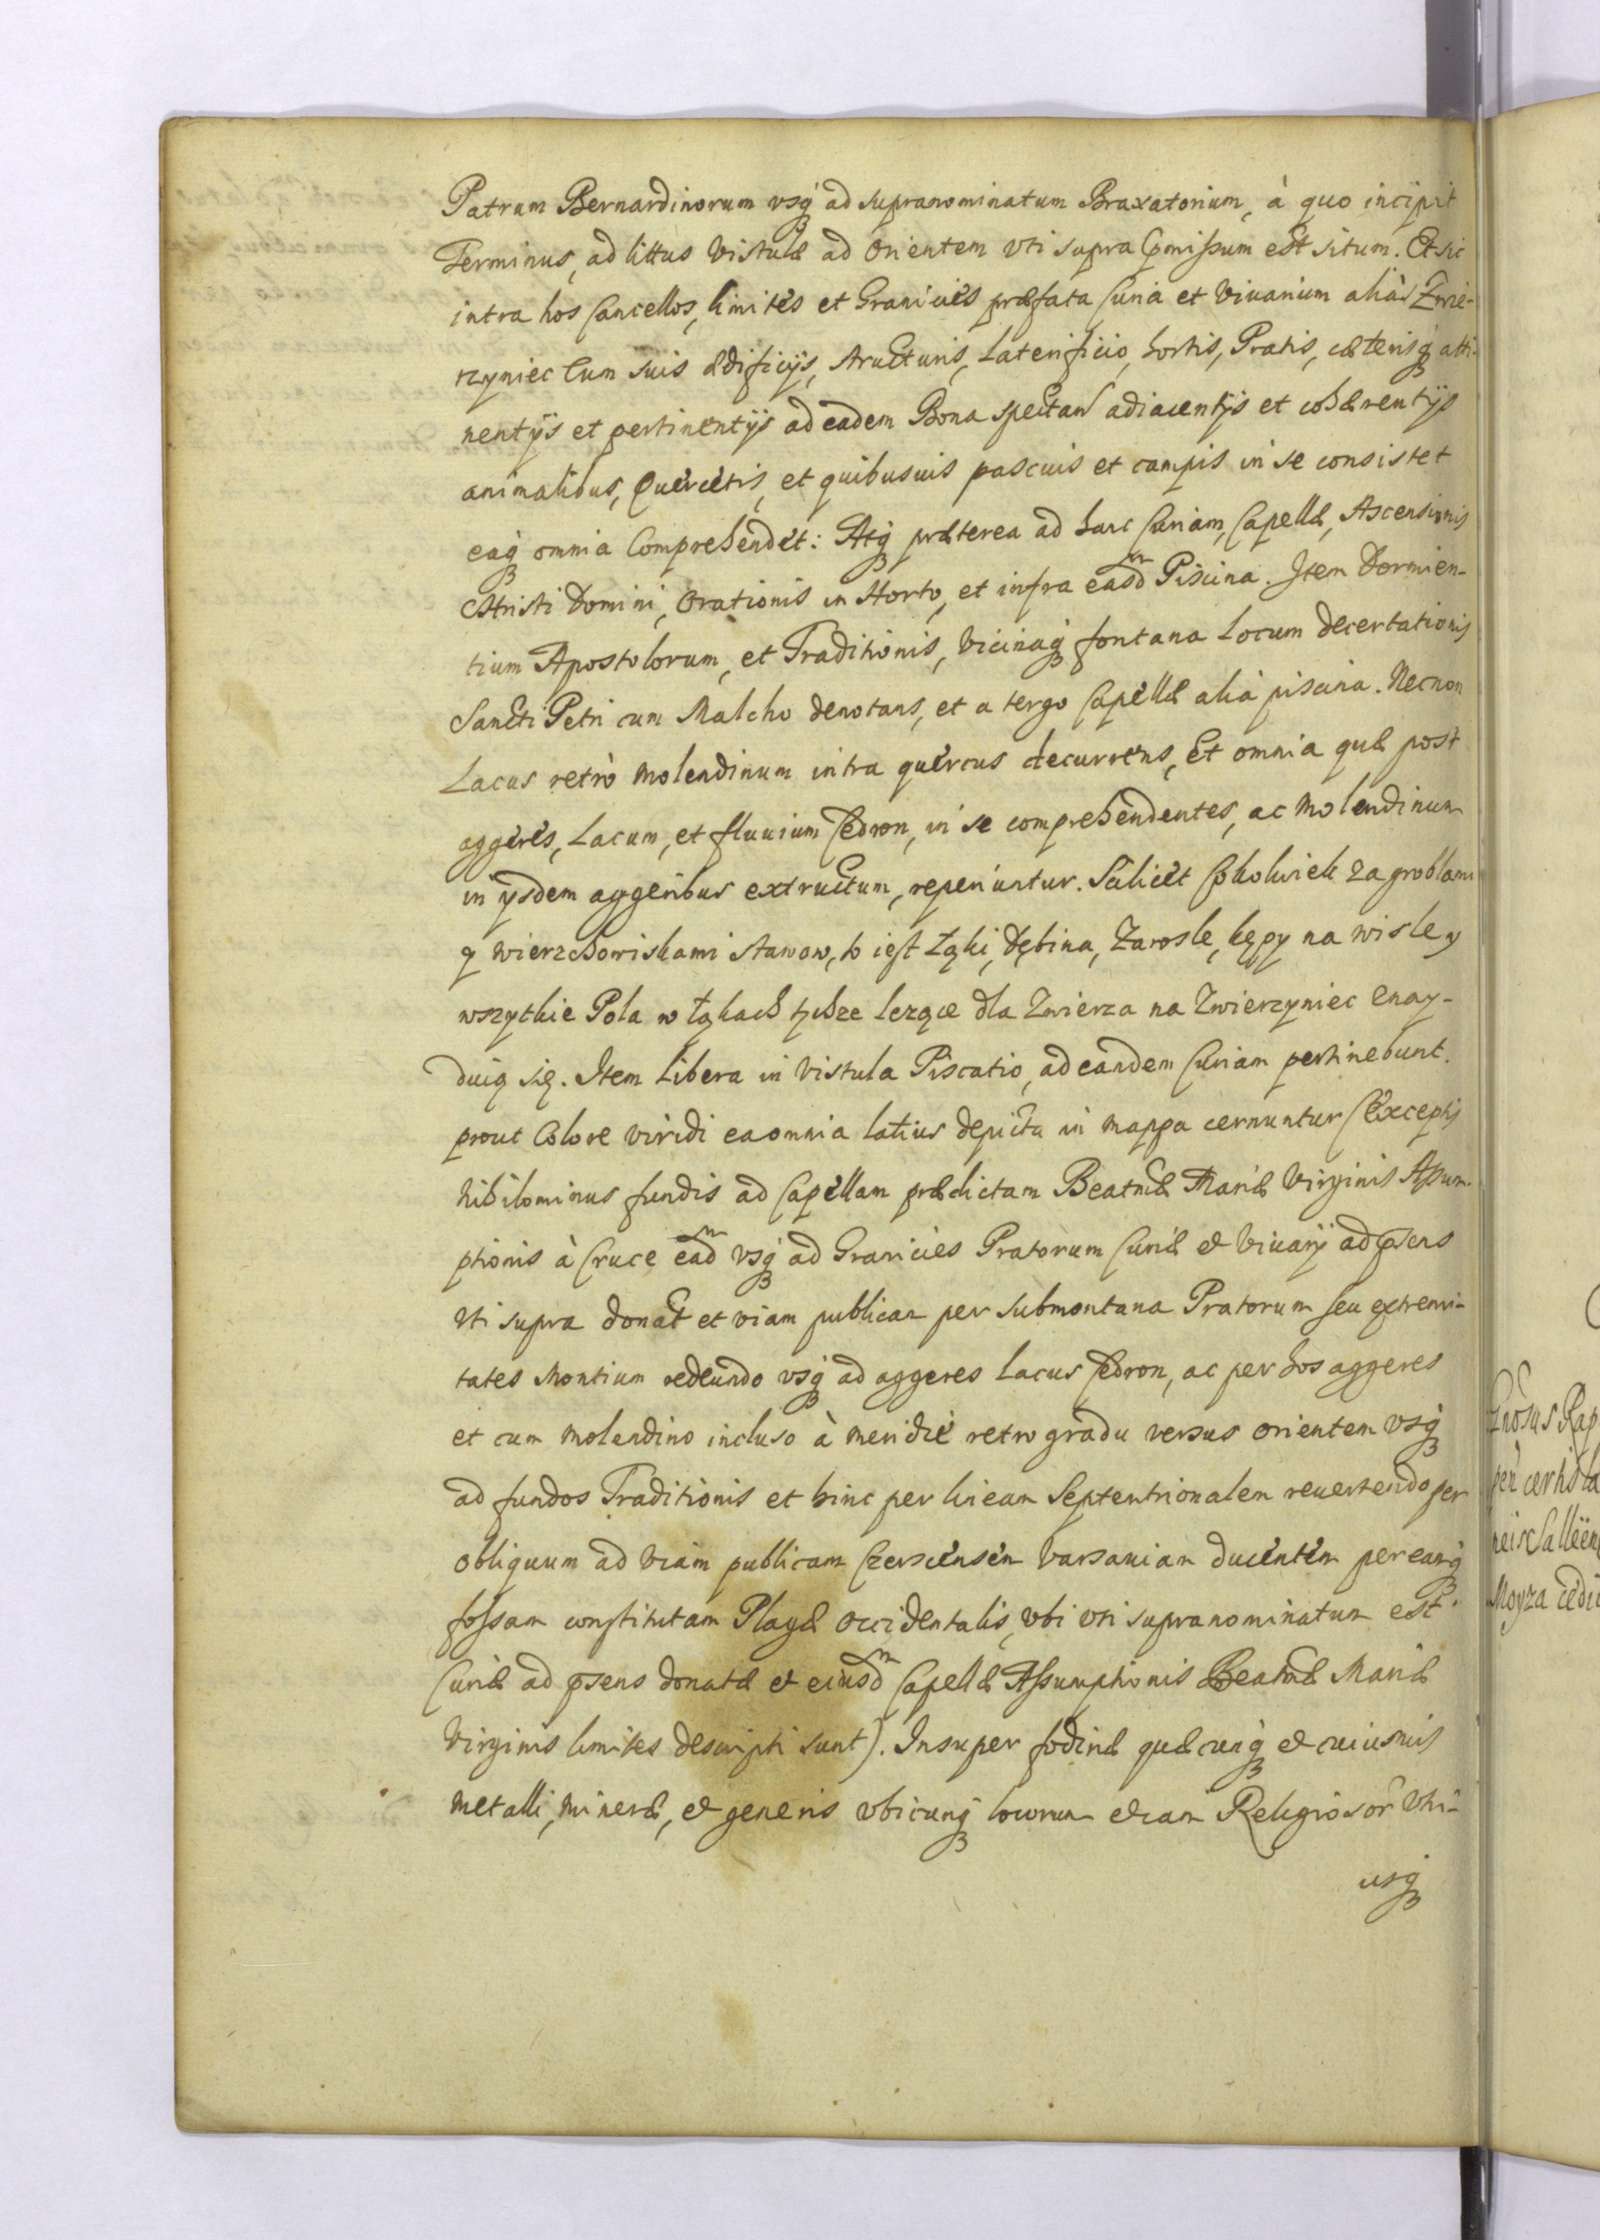 Patrum Bernardinorum vsq ad supranominatum Braxatorium, à quo incipit
Terminus, ad littus Vistulæ ad Orientem vti supra p̄missum est situm. Et sic
intra hos Cancellos, limites et Granicies præfata Curia et Viuarium aliàs Zwie-
rzyniec Cum suis ædificijs, structuris, Laterificio, hortis, Pratis, cæterisq atti-
nentijs et pertinentijs ad eadem Bona spectan adiacentijs et cohærentijs
animalibus, Quercetis, et quibusuis pascuis et campis in se consistet
eaq omnia Comprehendet: Atq præterea ad hanc Curiam, Capellæ, Ascensionis
Christi Domini, Orationis in Horto, et infra easdm Piscina. Item Dormien-
tium Apostolorum, et Traditionis, Vicinaq fontana Locum decertationis
Sancti Petri cum Malcho denotans, et a tergo Capellæ alia piscina. Necnon
Lacus retrò molendinum intra quercus decurrens, Et omnia quæ post
aggeres, Lacum, et fluuium Cedron, in se comprehendentes, ac Molendinum
in ijsdem aggeribus extructum, reperiuntur. Scilicet Cokolwiek za groblami
y wierzchowiskami stawow, to iest Łąki, Dębina, Zarosle, kępy na wisle y
wszytkie Pola w łąkach tychze lezące dla Zwierza na Zwierzyniec enay-
duią się. Item Libera in Vistula Piscatio, ad eandem Curiam pertinebunt.
prout Colore viridi ea omnia latius depicta in mappa cernuntur (Exceptis
nihilominus fundis ad Capellam prædictam Beatmæ Mariæ Virginis Assum-
ptionis à Cruce eadm vsq ad Granicies Pratorum Curiæ et Viuarij ad p̄sens
vti supra donat et viam publicam per submontana Pratorum seu extremi-
tates Montium redeundo vsq ad aggeres Lacus Cedron, ac per hos aggeres
et cum molendino incluso à meridie retro gradu versus orientem vsq
ad fundos Traditionis et hinc per lineam Septentrionalem reuertendo per
obliquum ad Viam publicam Czerscensem Varsauiam ducentem per eamq
fossam constitutam Plagæ Occidentalis, vbi vti supranominatum est
Curiæ ad p̄sens donatæ et eiusdm Capellæ Assumptionis Beatmæ Mariæ
Virginis limites descripti sunt). Insuper fodinæ quæcunq et cuiusuis
metalli, mineræ, et generis vbicunq locorum etiam Religiosor̄ vtri-
usq